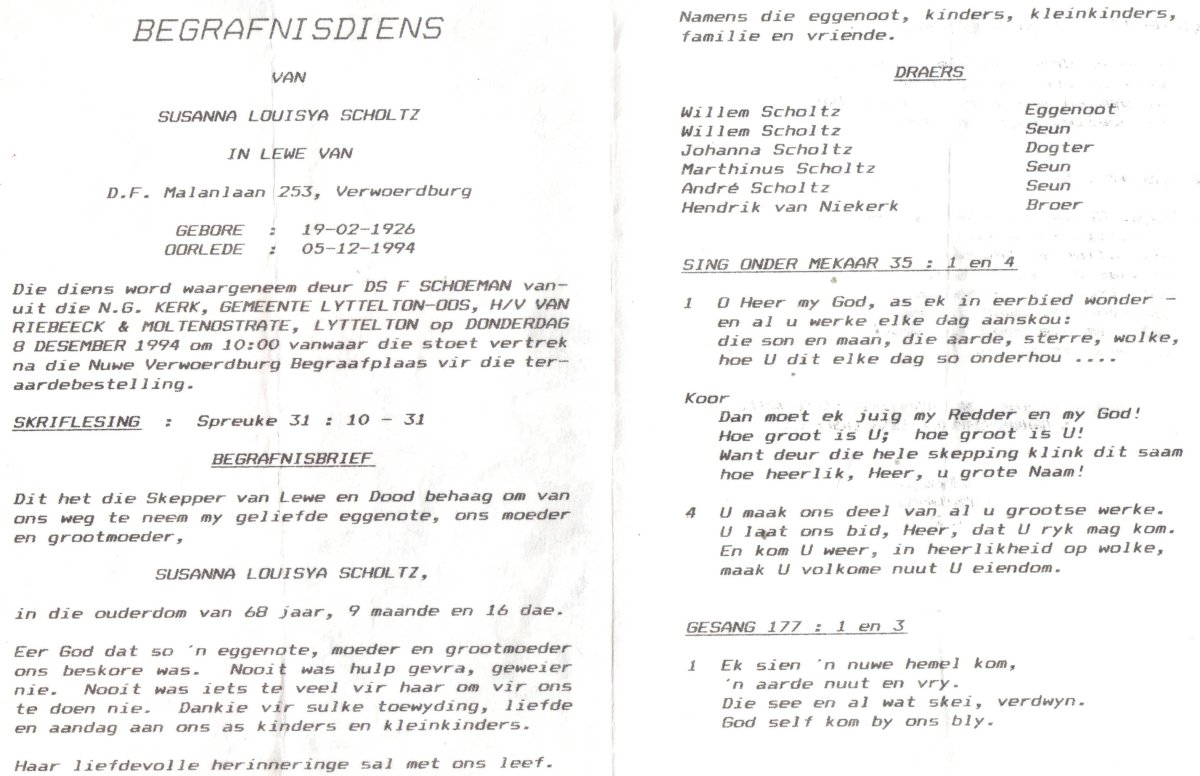 BEGRAFNISDIENS
VAN
SUSANNA LOUISYA SCHOLTZ
IN LEWE VAN
D.F. Malanlaan 253, Verwoerdburg
GEBORE : 19-02-1926
OORLEDE : 05-12-1994
Die diens word waargeneem deur DS F SCHOEMAN van-
uit die N.G. KERK, GEMEENTE LYTTELTON-OOS, H/V VAN
RIEBEECK & MOLTENOSTRATE, LYTTELTON op DONDERDAG
8 DESEMBER 1994 om 10:00 vanwaar die stoet vertrek
na die Nuwe Verwoerdburg Begraafplaas vir die ter-
aardebestelling.
SKRIFLESING : Spreuke 31 : 10 - 31
BEGRAFNISBRIEF
Dit het die Skepper van Lewe en Dood behaag om van
ons weg te neem my geliefde eggenote, ons moeder
en grootmoeder,
SUSANNA LOUISYA SCHOLTZ,
in die ouderdom van 68 jaar, 9 maande en 16 dae.
Eer God dat so 'n eggenote, moeder en grootmoeder
ons beskore was. Nooit was hulp gevra, geweier
nie. Nooit was iets te veel vir haar om vir ons
te doen nie. Dankie vir sulke toewyding, liefde
en aandag aan ons as kinders en kleinkinders.
Haar liefdevolle herinneringe sal met ons leef.
Namens die eggenoot, kinders, kleinkinders,
familie en vriende.
DRAERS
Willem Scholtz Eggenoot
Willem Scholtz Seun
Johanna Scholtz Dogter
Marthinus Scholtz Seun
André Scholtz Seun
Hendrik van Niekerk Broer
SING ONDER MEKAAR 35 : 1 en 4
1 O Heer my God, as ek in eerbied wonder -
en al u werke elke dag aanskou:
die son en maan, die aarde, sterre, wolke,
hoe U dit elke dag so onderhou ....
Koor
Dan moet ek juig my Redder en my God!
Hoe groot is U; hoe groot is U!
Want deur die hele skepping klink dit saam
hoe heerlik, Heer, u grote Naam!
4 U maak ons deel van al u grootse werke.
U laat ons bid, Heer, dat U ryk mag kom.
En kom U weer, in heerlikheid op wolke,
maak U volkome nuut U eiendom.
GESANG 177 : 1 en 3
1 Ek sien 'n nuwe hemel kom,
'n aarde nuut en vry.
Die see en al wat skei, verdwyn.
God self kom by ons bly.